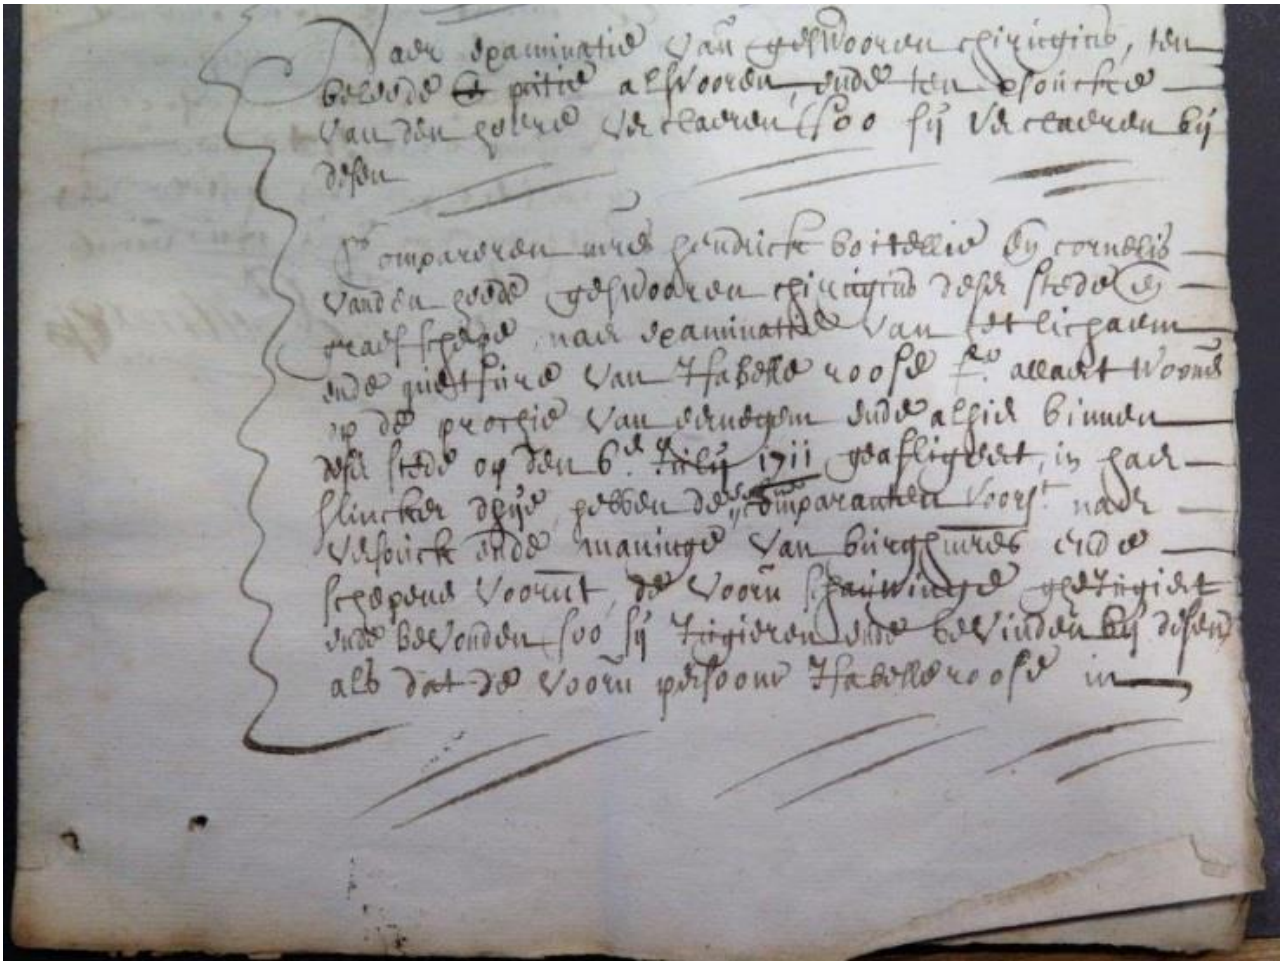 Naer examinatie van geswooren chirurgins, ten
beleede patie alsvooren, ende ten versoucke
van den heere verclaeren soo sij verclaeren bij
desen
Compareren mrs hendrick bottellie en cornelis
vanden heede geswooren chirurgins deser stede en
graefschepe, naer examinatie van het lichaem
ende quetsure van Isabelle roose fa allaert woonende
op de prochie van eernegem ende alhier binnen
dese stede op den 6en July 1711 geafligeert, in haer
slincker dhije, hebben de comparanten voorst naer
versouck ende maninge van burghmrs ende
schepene voornt, de voorn schauwinge ghevisiert
ende bevonden soo sij visieren ende bevinden bij desen
als dat de voorn persoone Isabelle roose in